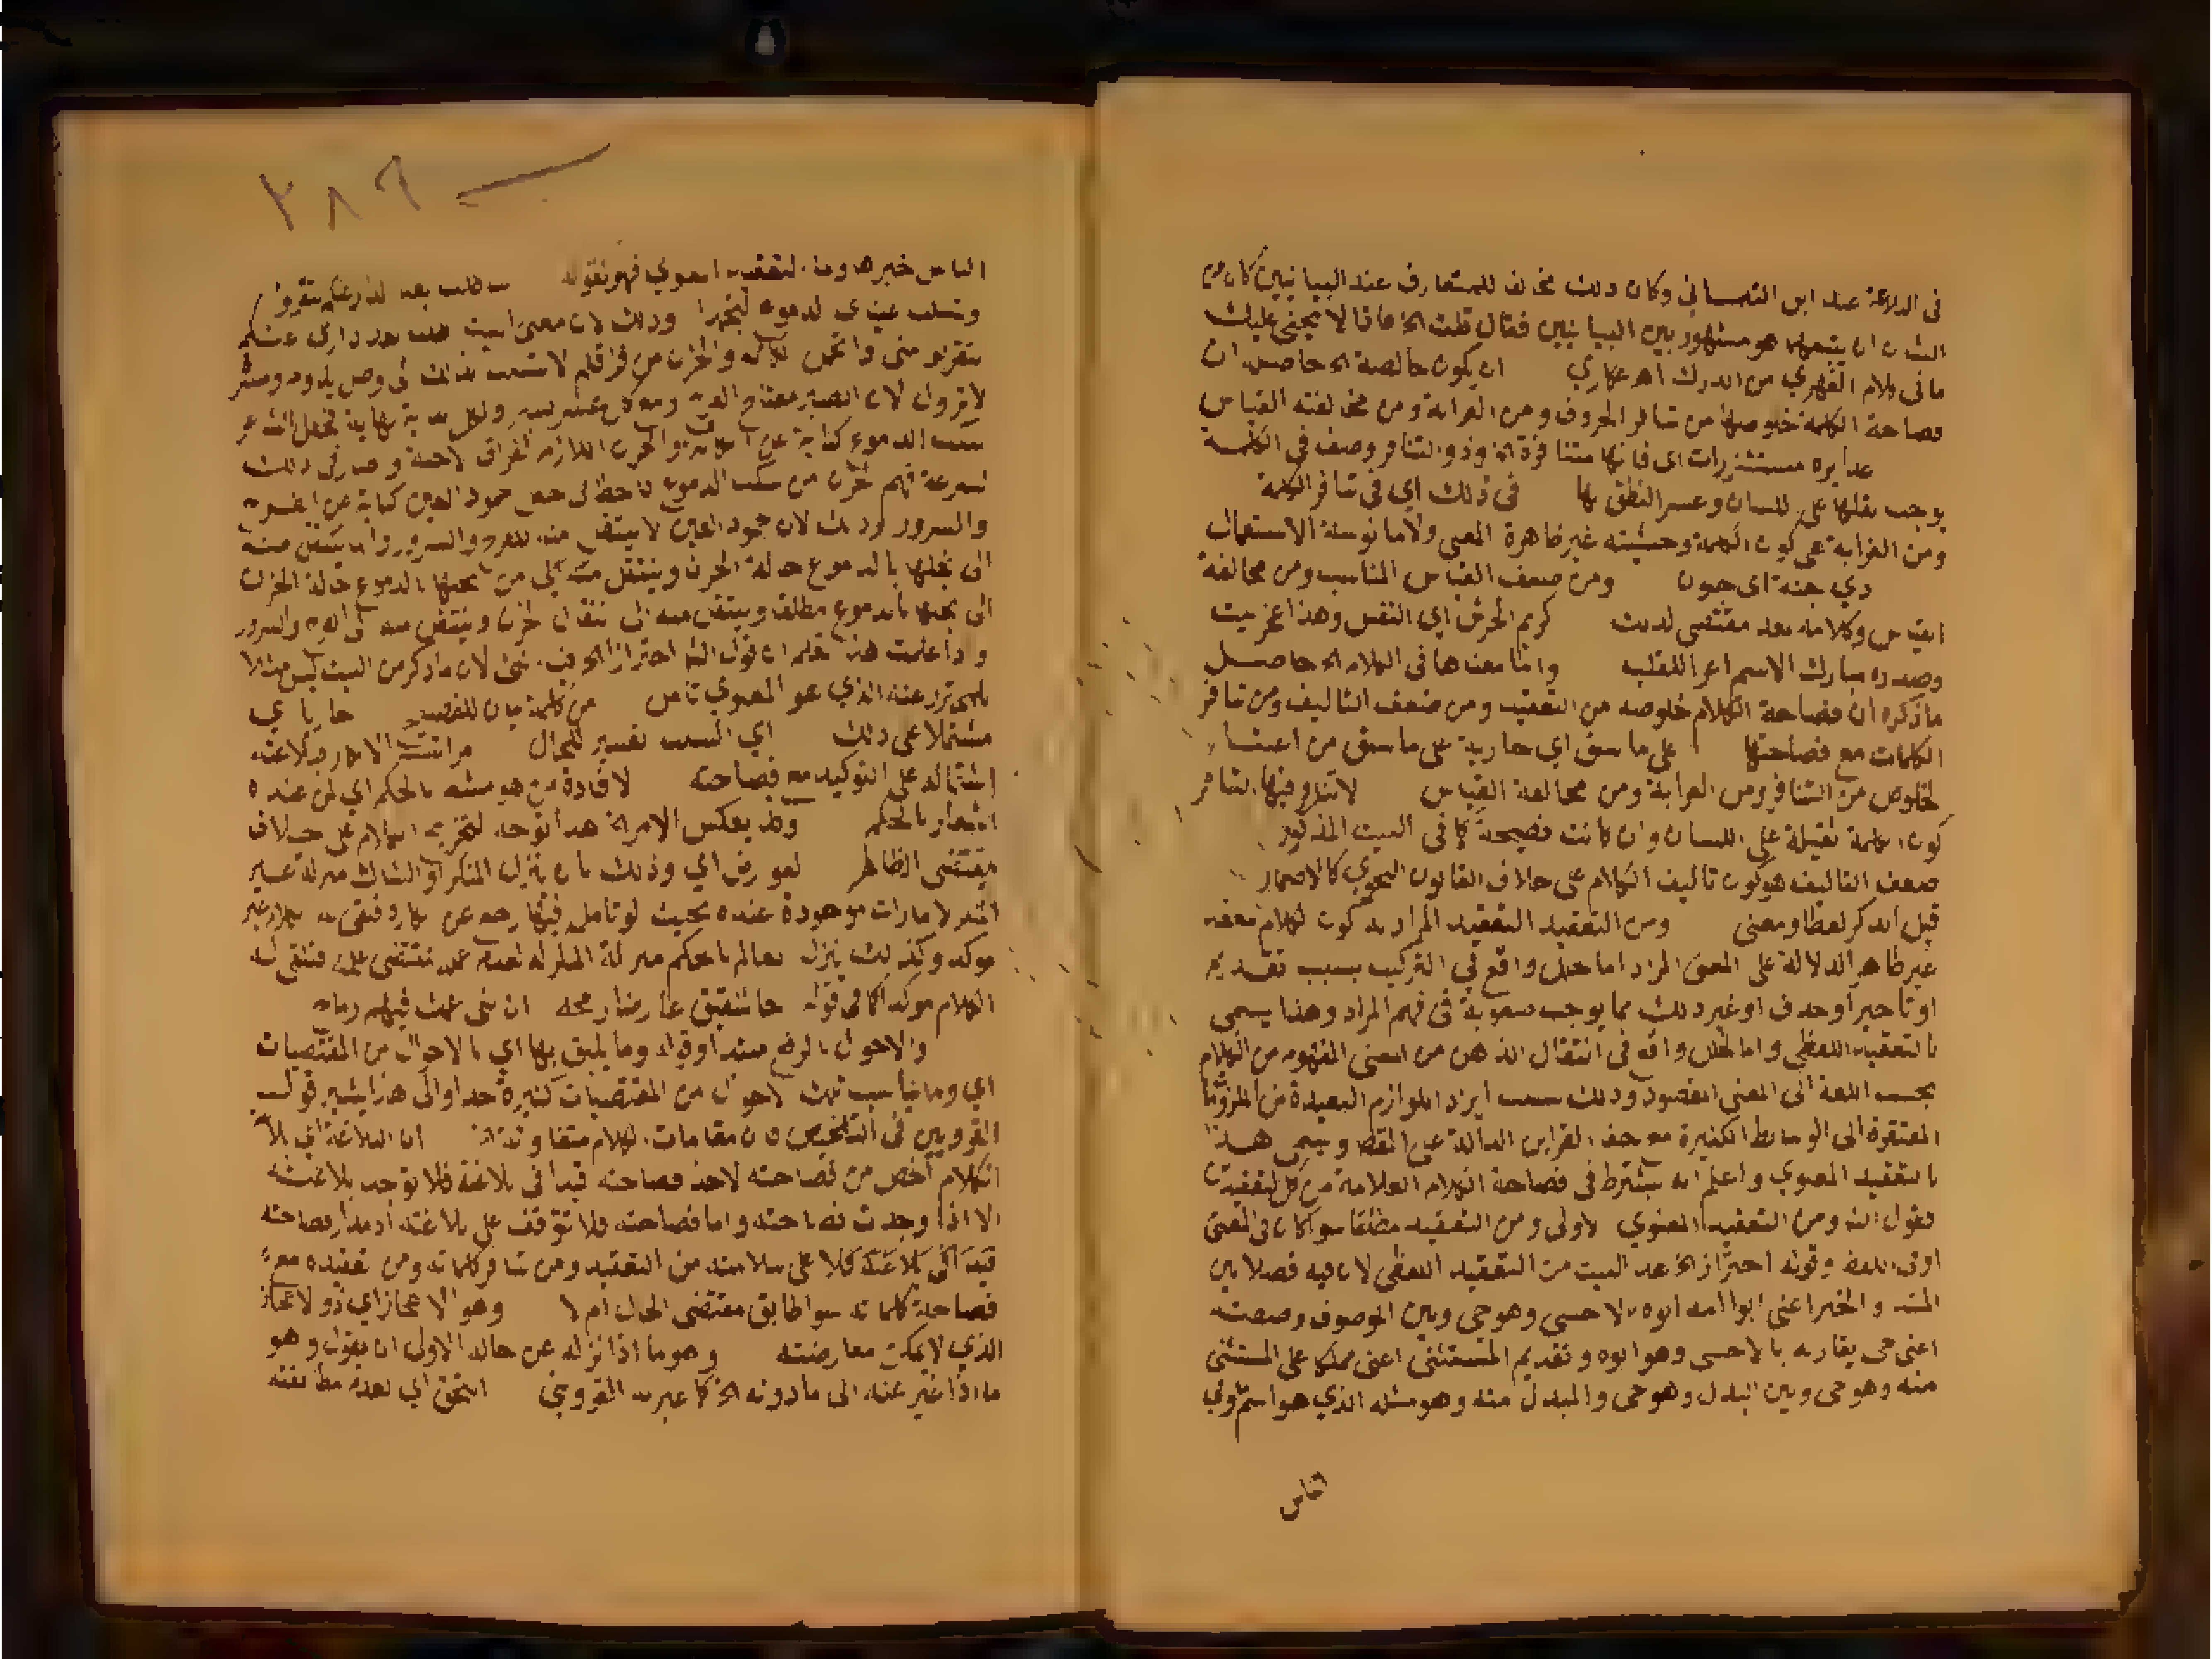 في البلاغة عند ابن التلمساني وكان ذلك مخالف للمتعارف عند البيانيين كان من
الشان ان ينبه هو مشهور بين البيانيين فقال قلت الخ فانا لا يخفى عليك
ما في كلام الفهري من الدرك اهـ عكاري ان يكون خالصة الخ حاصله ان
فصاحة الكلمة خلوصها من تنافر الحروف ومن الغرابة ومن مخالفته القياس
غدايره مستشزرات اى فانها متنافرة الخ وذو التنافر وصف في الكلمة
يوجب ثقلها على اللسان وعسر النطق بها في ذلك اي في تنافر الكلمة
ومن الغرابة هي كون الكلمة وحشيته غير ظاهرة المعنى ولا مانوسة الاستعمال
ذي جنة اى جنون ومن ضعف القياس المناسب ومن مخالفة
القياس وكلامه بعد مقتضى لذلك كريم الجرشى اي النفس وهذا عجز بيت
وصدره مبارك الاسم اغر اللقب وانا معناها في الكلام الخ حاصل
ما ذكره ان فصاحة الكلام خلوصه من التعقيد ومن ضعف التاليف ومن تنافر
الكلمات مع فصاحتها على ما سبق اي جارية على ما سبق من اعتبار
الخلوص من التنافر ومن الغرابة ومن مخالفة القياس لا تتلوفيها التنافر
كون الكلمة ثقيلة على اللسان وان كانت فصيحة كما في البيت المذكور
ضعف التاليف هو كون تاليف الكلام على خلاف القانون النحوي كالاضمار
قبل الذكر لفظا ومعنى ومن التعقيد التعقيد المراد به كون الكلام معقد
غير ظاهر الدلالة على المعنى المراد اما خلل واقع في التركيب بسبب تقديم
او تاخير او حذف او غير ذلك مما يوجب صعوبة في فهم المراد وهذا يسمى
بالتعقيد اللفظي واما لخلل واقع في انتقال الذهن من المعنى المفهوم من الكلام
بحسب اللغة الى المعنى المقصود وذلك بسبب ايراد اللوازم البعيدة من الملزوما
المفتقرة الى الوسايط الكثيرة مع خفا القراين الدالة على المقصد ويسمى هذا
بالتعقيد المعنوي واعلم انه يشترط في فصاحة الكلام السلامة من كل التعقيدين
فقول الش ومن التعقيد المعنوي الاولى ومن التعقيد مطلقا سوا كان في المعنى
او في اللفظ وقوله احترازا الخ عد البيت من التعقيد اللفظي لان فيه فصلا بين
المبتدا والخبر اعني ابو امه ابوه بالاجنبي وهو حي وبين الموصوف وصفته
اعني حي يقاربه بالاجنبي وهو ابوه وتقديم المستثنى اعني مملكا على المستثنى
منه وهو حي وبين البدل وهو حي والمبدل منه وهو مثله الذي هو اسم ما وفي
الناس
٢٨٦
الناس خبرها ومن التعقيد المعنوي فهو نقوله ساطلب بعد الدار عنكم لتقربوا
وتسكب عيناي الدموع لتجمدا وذلك لان معنى البيت اطلب بعد داري عنكم
لتقربوا مني واتحمل الكآبة والحزن من فراقكم لاتسبب بذلك الى وصل يدوم ومسرة
لا تزول لان الصبر مفتاح الفرج ومع كل عسر يسر ولكل بداية نهاية فجعل الشاعر
سكب الدموع كناية عن الكآبة والحزن اللازم لفراق الاحبة واصاب في ذلك
لسرعة فهم الحزن من سكب الدموع واخطا في جعل جمود العين كناية عن الفرح
والسرور وذلك لان جمود العين لا ينتقل منه للفرح والسرور وانما ينتقل منه
الى بخلها بالدموع حالة الحزن وينتقل منه الى من بخلها بالدموع حالة الحزن
الى بخلها بالدموع مطلقا وينتقل منه الى انتفاء الحزن وينتقل منه الى الفرح والسرور
واذا علمت هذا تعلم ان قول الش احترازا الخ فيه شئ لان ما ذكر من البيت ليس مثالا
للمحترز عنه الذي هو المعنوي تامل من كلمة بيان للفصيح جاريا اي
مشتملا على ذلك اي السبب تفسير للحال مراتب الانكار فبلاغته
اشتماله على التوكيد مع فصاحته لا فادة من هو مشه بالحكم اي لمن عنده
اشعار بالحكم وقد يعكس الامر الخ هذا توجه لتخريج الكلام على خلاف
مقتضى الظاهر لعوارض اي وذلك بان ينزل المنكر او الشاك منزلة غير
المنكر لامارات موجودة عنده بحيث لو تامل فيها رجع عن انكاره فيلقى له الكلام غير
موكد وكذلك ينزل العالم بالحكم منزلة المنكر له لعدم عمله بمقتضى علمه فيلقى له
الكلام موكدا كما في قوله جا شقيق عارضا رمحه ان بني عمك فيهم رماح
والاحوال بالرفع مبتدا وقوله وما يليق بها اي بالاحوال من المقتضيات
اي وما يناسب تلك الاحوال من المقتضيات كثيرة جدا والى هذا يشير قول
القزويني في التلخيص فان مقامات الكلام متفاوتة الخ ان البلاغة اي بلا
الكلام اخص من فصاحته لاخذ فصاحته قيدا في بلاغته فلا توجد بلاغته
الا اذا وجدت فصاحته واما فصاحته فلا تتوقف على بلاغته اذ مدار فصاحته
قيدا في بلاغته كلا على سلامته من التعقيد ومن تنافر كلماته ومن تعقيده مع
فصاحة كلماته سوا طابق مقتضى الحال ام لا وهو الاعجاز اي ذو الاعجاز
الذي لا يمكن معارضته وهو ما اذا نزل عن حاله الاولى ان يقول وهو
ما اذا غير عنه الى ما دونه الخ كما عبر به القزويني التحق اي لعدم مطابقته